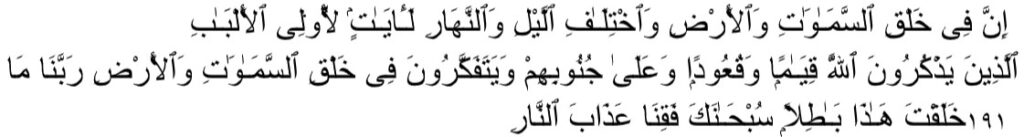 إِنَّ فِى خَلْقِ ٱلسَّمَـٰوَٰتِ وَٱلْأَرْضِ وَٱخْتِلَـٰفِ ٱلَّيْلِ وَٱلنَّهَارِ لَـَٔايَـٰتٍۢ لِّأُو۟لِى ٱلْأَلْبَـٰبِ
ٱلَّذِينَ يَذْكُرُونَ ٱللَّهَ قِيَـٰمًۭا وَقُعُودًۭا وَعَلَىٰ جُنُوبِهِمْ وَيَتَفَكَّرُونَ فِى خَلْقِ ٱلسَّمَـٰوَٰتِ وَٱلْأَرْضِ رَبَّنَا مَا
١٩١خَلَقْتَ هَـٰذَا بَـٰطِلًۭا سُبْحَـٰنَكَ فَقِنَا عَذَابَ ٱلنَّارِ